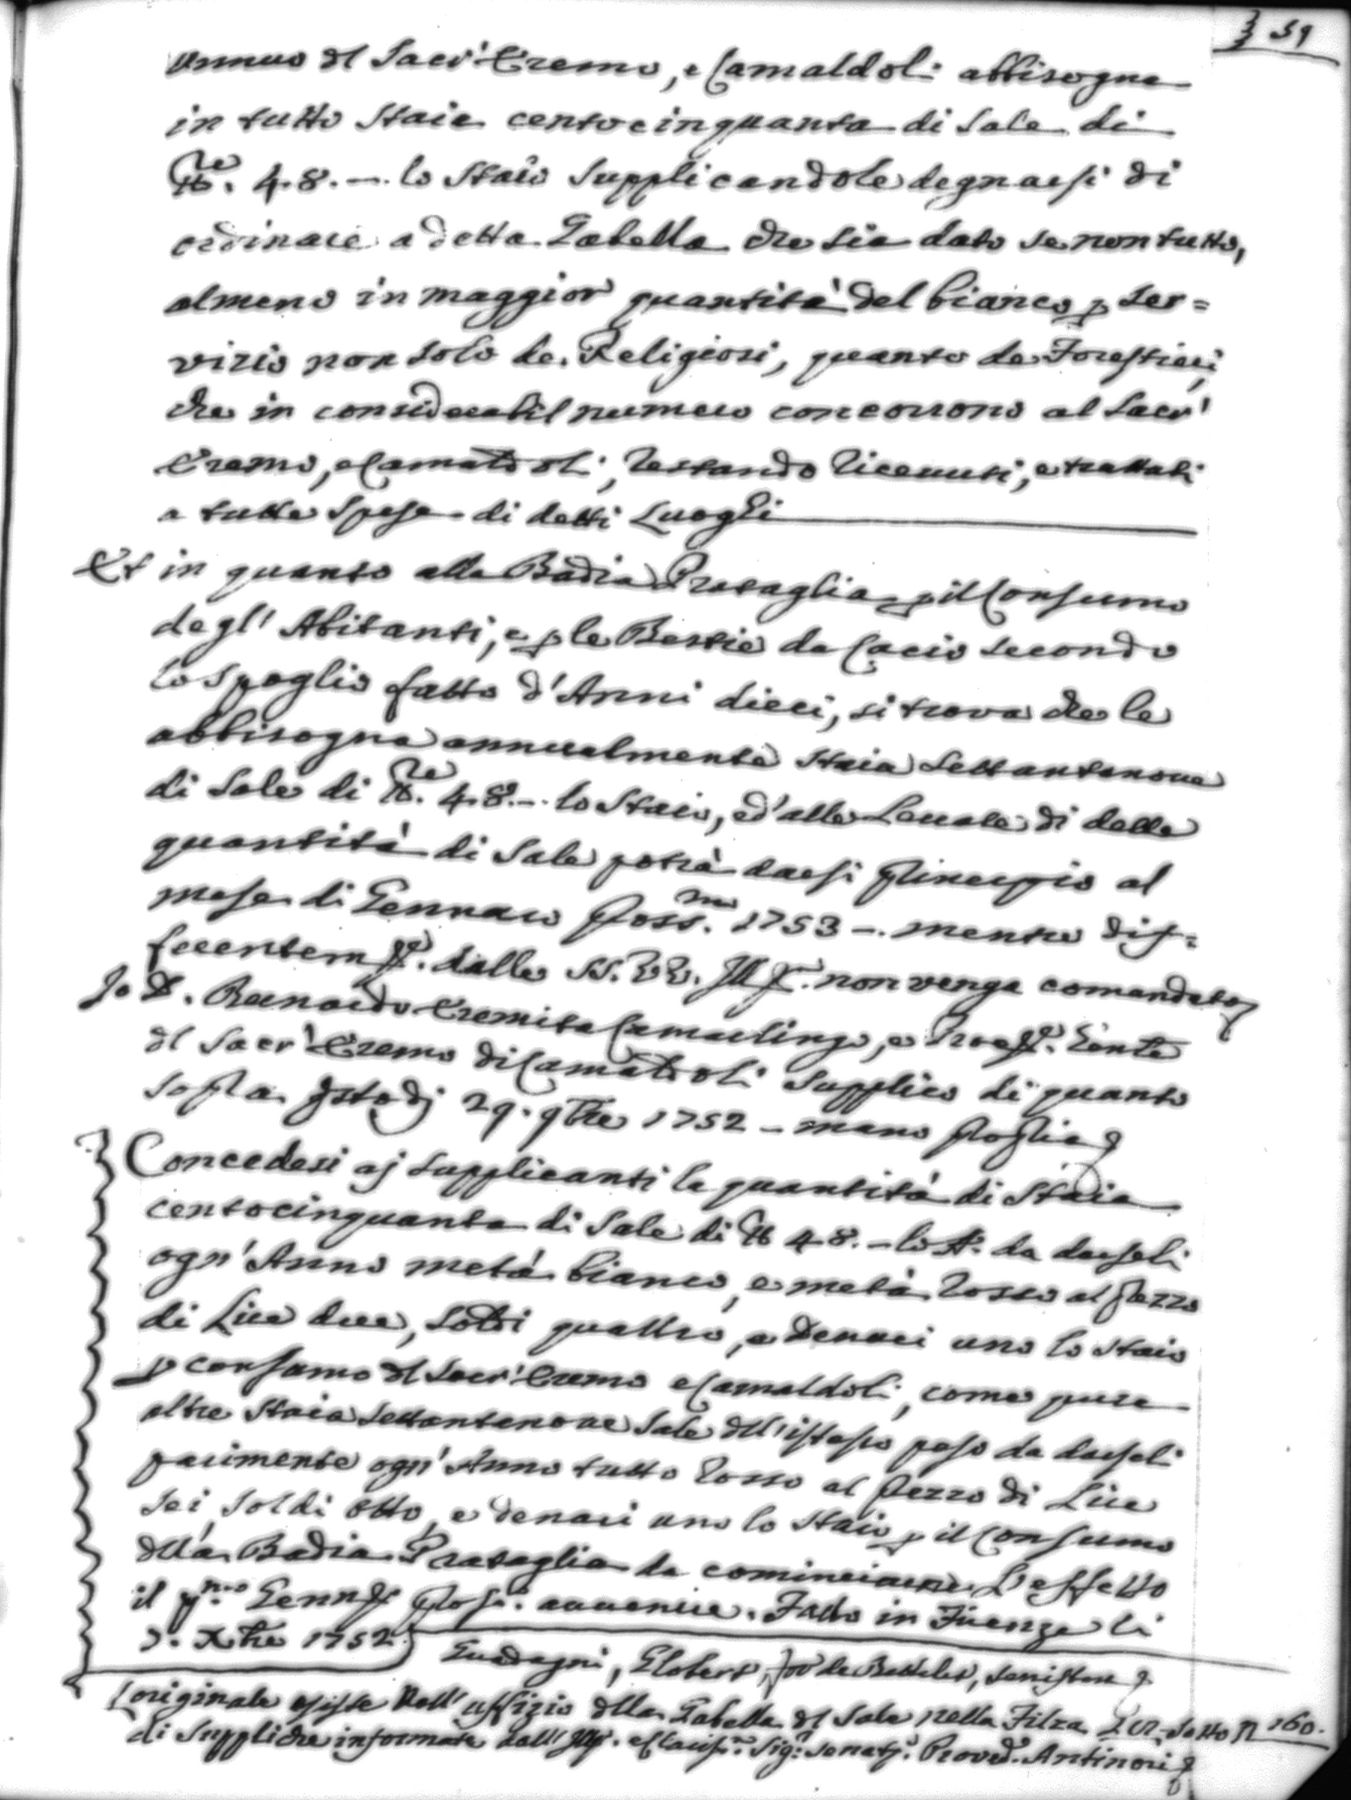 59
annuo dl Sacr' Eremo, e Camaldoli abbisogna
in tutto Staia centocinquanta di Sale di
lb.re 48. — lo Staio Supplicandole degnarsi di
ordinare a detta Gabella che sia dato se non tutto,
almeno in maggior quantità del bianco p ser=
vizio non solo de Religiosi, quanto de Forestieri,
che in considerabil numero concorrono al Sacr'
Eremo, e Camaldoli, restando ricevuti, e trattati
a tutte Spese di detti Luoghi
Et in quanto alla Badia Prataglia p il Consumo
degl' Abitanti, e p le Bestie da Cacio secondo
lo Spoglio fatto d'Anni dieci, si trova che le
abbisogna annualmente Staia Settantanove
di Sale di lb.re 48. — lo Staio, ed' alle Levate di dette
quantità di Sale potrà darsi principio al
mese di Gennaro pross.mo 1753 —. mentre dif=
ferentem.e dalle SS. VV. Ill.e non venga comandato
Io D. Bernardo Eremita Camarlingo, e
dl Sacr' Eremo di Camaldoli Supplico di quanto
sopra qsto dj 29. 9bre 1752 — mano propria
Concedesi aj supplicanti la quantità di Staia
centocinquanta di Sale di lb 48. — lo St. da darseli
ogn' Anno metà bianco, e metà rosso al prezzo
di Lire due, Soldi quattro, e Denari uno lo Staio
p consumo dl Sacr' Eremo e Camaldoli, come pure
altre Staia Settantanove Sale dll' istesso peso da darseli
parimente ogn' Anno tutto rosso al prezzo di Lire
sei, Soldi otto, e denari uno lo Staio p il Consumo
dlla Badia Prataglia da cominciarne l'effetto
il p.mo Genn.o pross. avvenire. Fatto in Firenze li
1752
Guadagni, senistori
L'originale esiste nell' uffizio dlla Gabella dl Sale nella Filza sotto n 160.
di Suppliche informate dall' Ill. e Clariss. Sig. Senat. Proved. Antinori